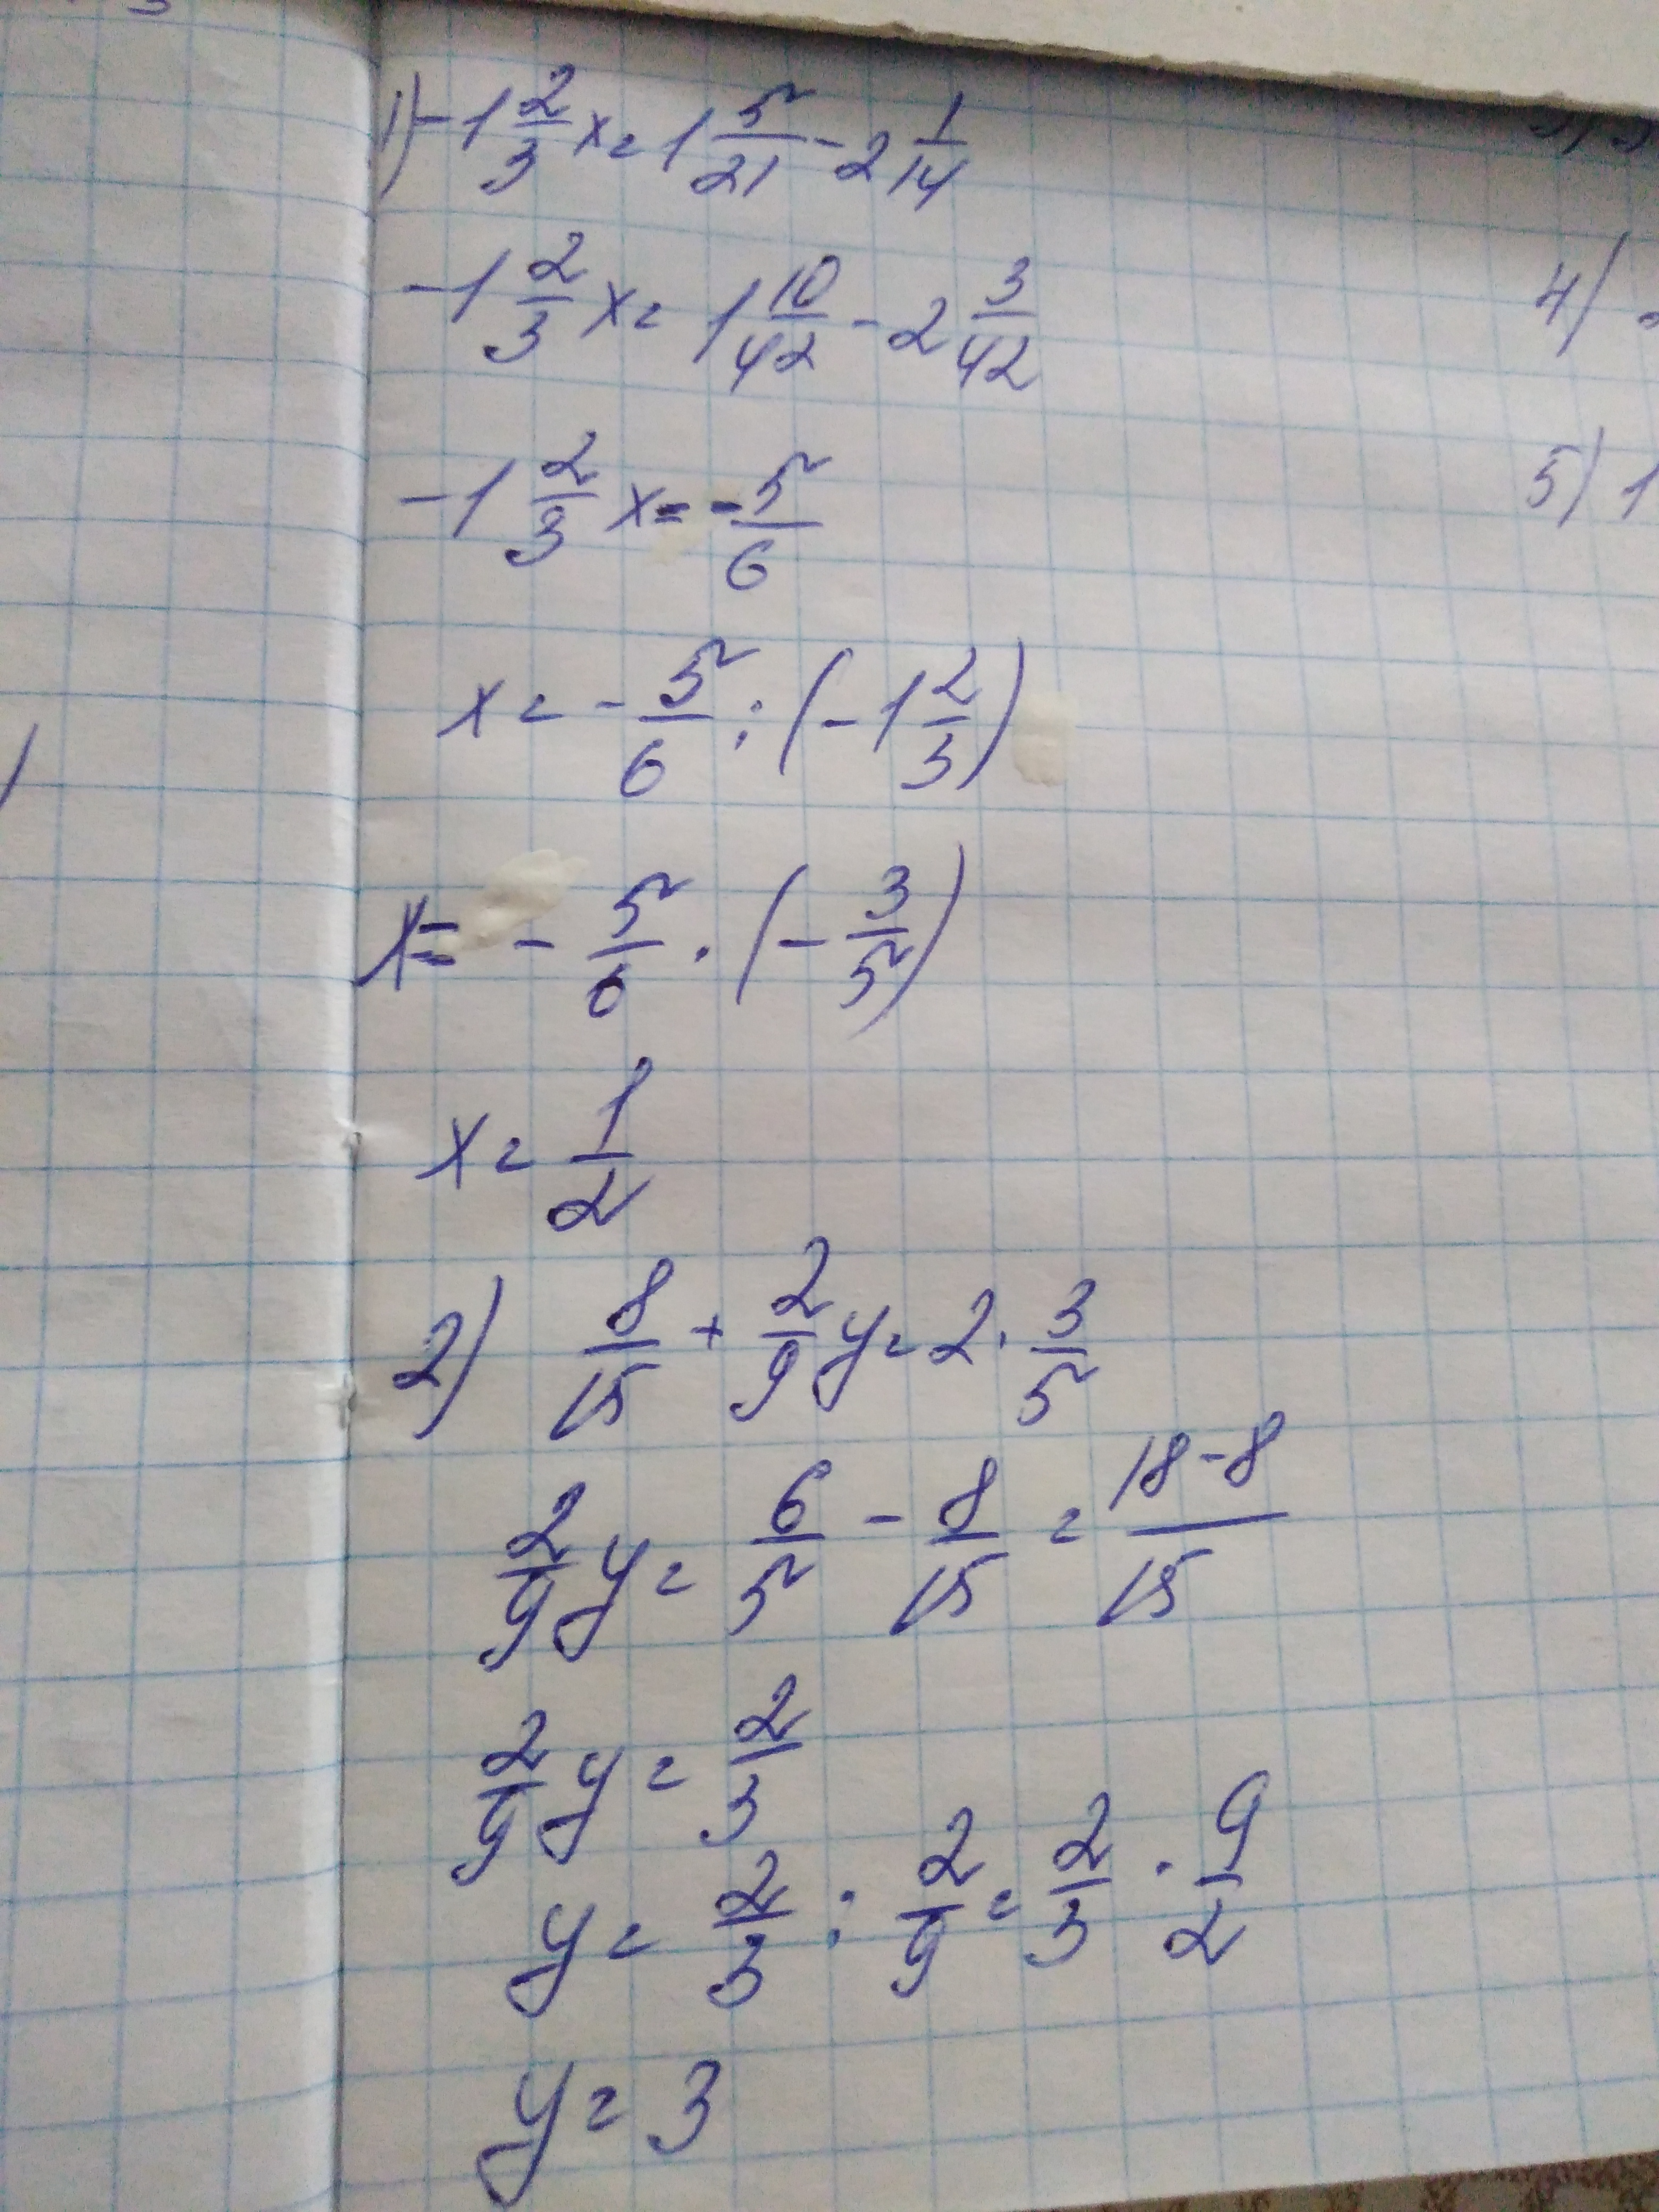 1) -1 2/3 x = 1 5/21 - 2 1/14
-1 2/3 x = 1 10/42 - 2 3/42
4)
-1 2/3 x = - 5/6
5) 1
x = - 5/6 : (-1 2/3)
x = - 5/6 · (- 3/5)
x = 1/2
2) 8/15 + 2/9 y = 2 · 3/5
2/9 y = 6/5 - 8/15 = 18-8/15
2/9 y = 2/3
y = 2/3 : 2/9 = 2/3 · 9/2
y = 3